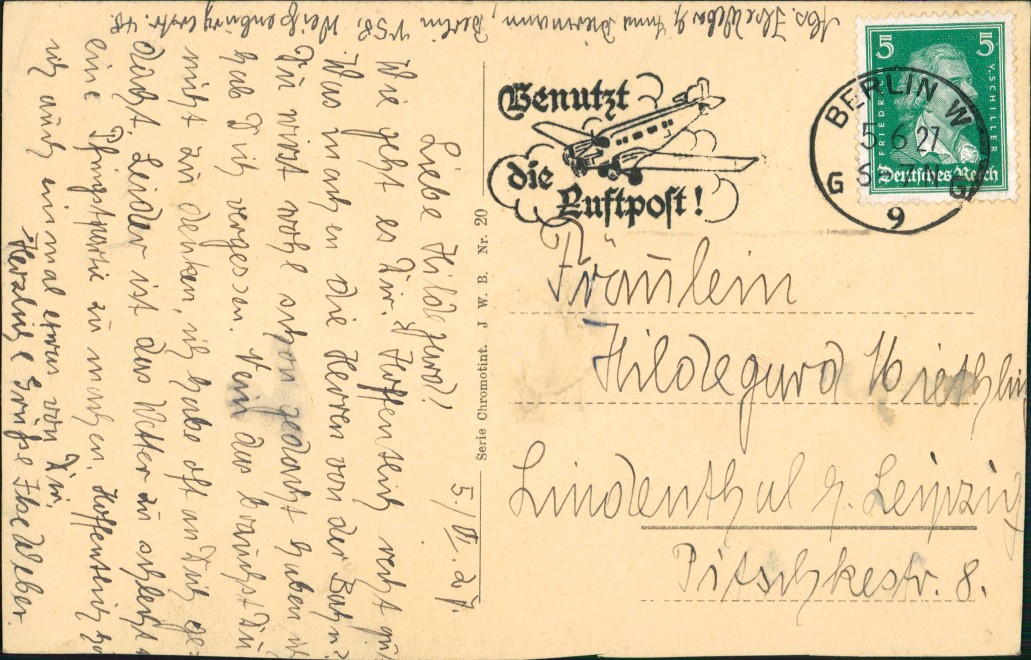 Abs. Ilse Weber b/ Anna Biermann, Berlin N 58, Weißenburgerstr. 48.
5./VI. 27.
Liebe Hildegard!
Wie geht es Dir. Hoffentlich recht gut
Was machen die Herren von der Bahn?
Du wirst wohl schon gedacht haben ich
hab Dich vergessen. Nein das brauchst Du
nicht zu denken, ich habe oft an Dich ge=
dacht. Leider ist das Wetter zu schlecht
eine Pfingstpartie zu machen. Hoffentlich
ich auch einmal etwas von Dir.
Herzliche Grüße Ilse Weber.
Serie Chromotint. J. W. B. Nr. 20
Benutzt
die
Luftpost!
5 5
FRIEDRICH V. SCHILLER
Deutsches Reich
BERLIN W
5.6.27
G G
9
Fräulein
Hildegard
Lindenthal b. Leipzig
Pitschkestr. 8.